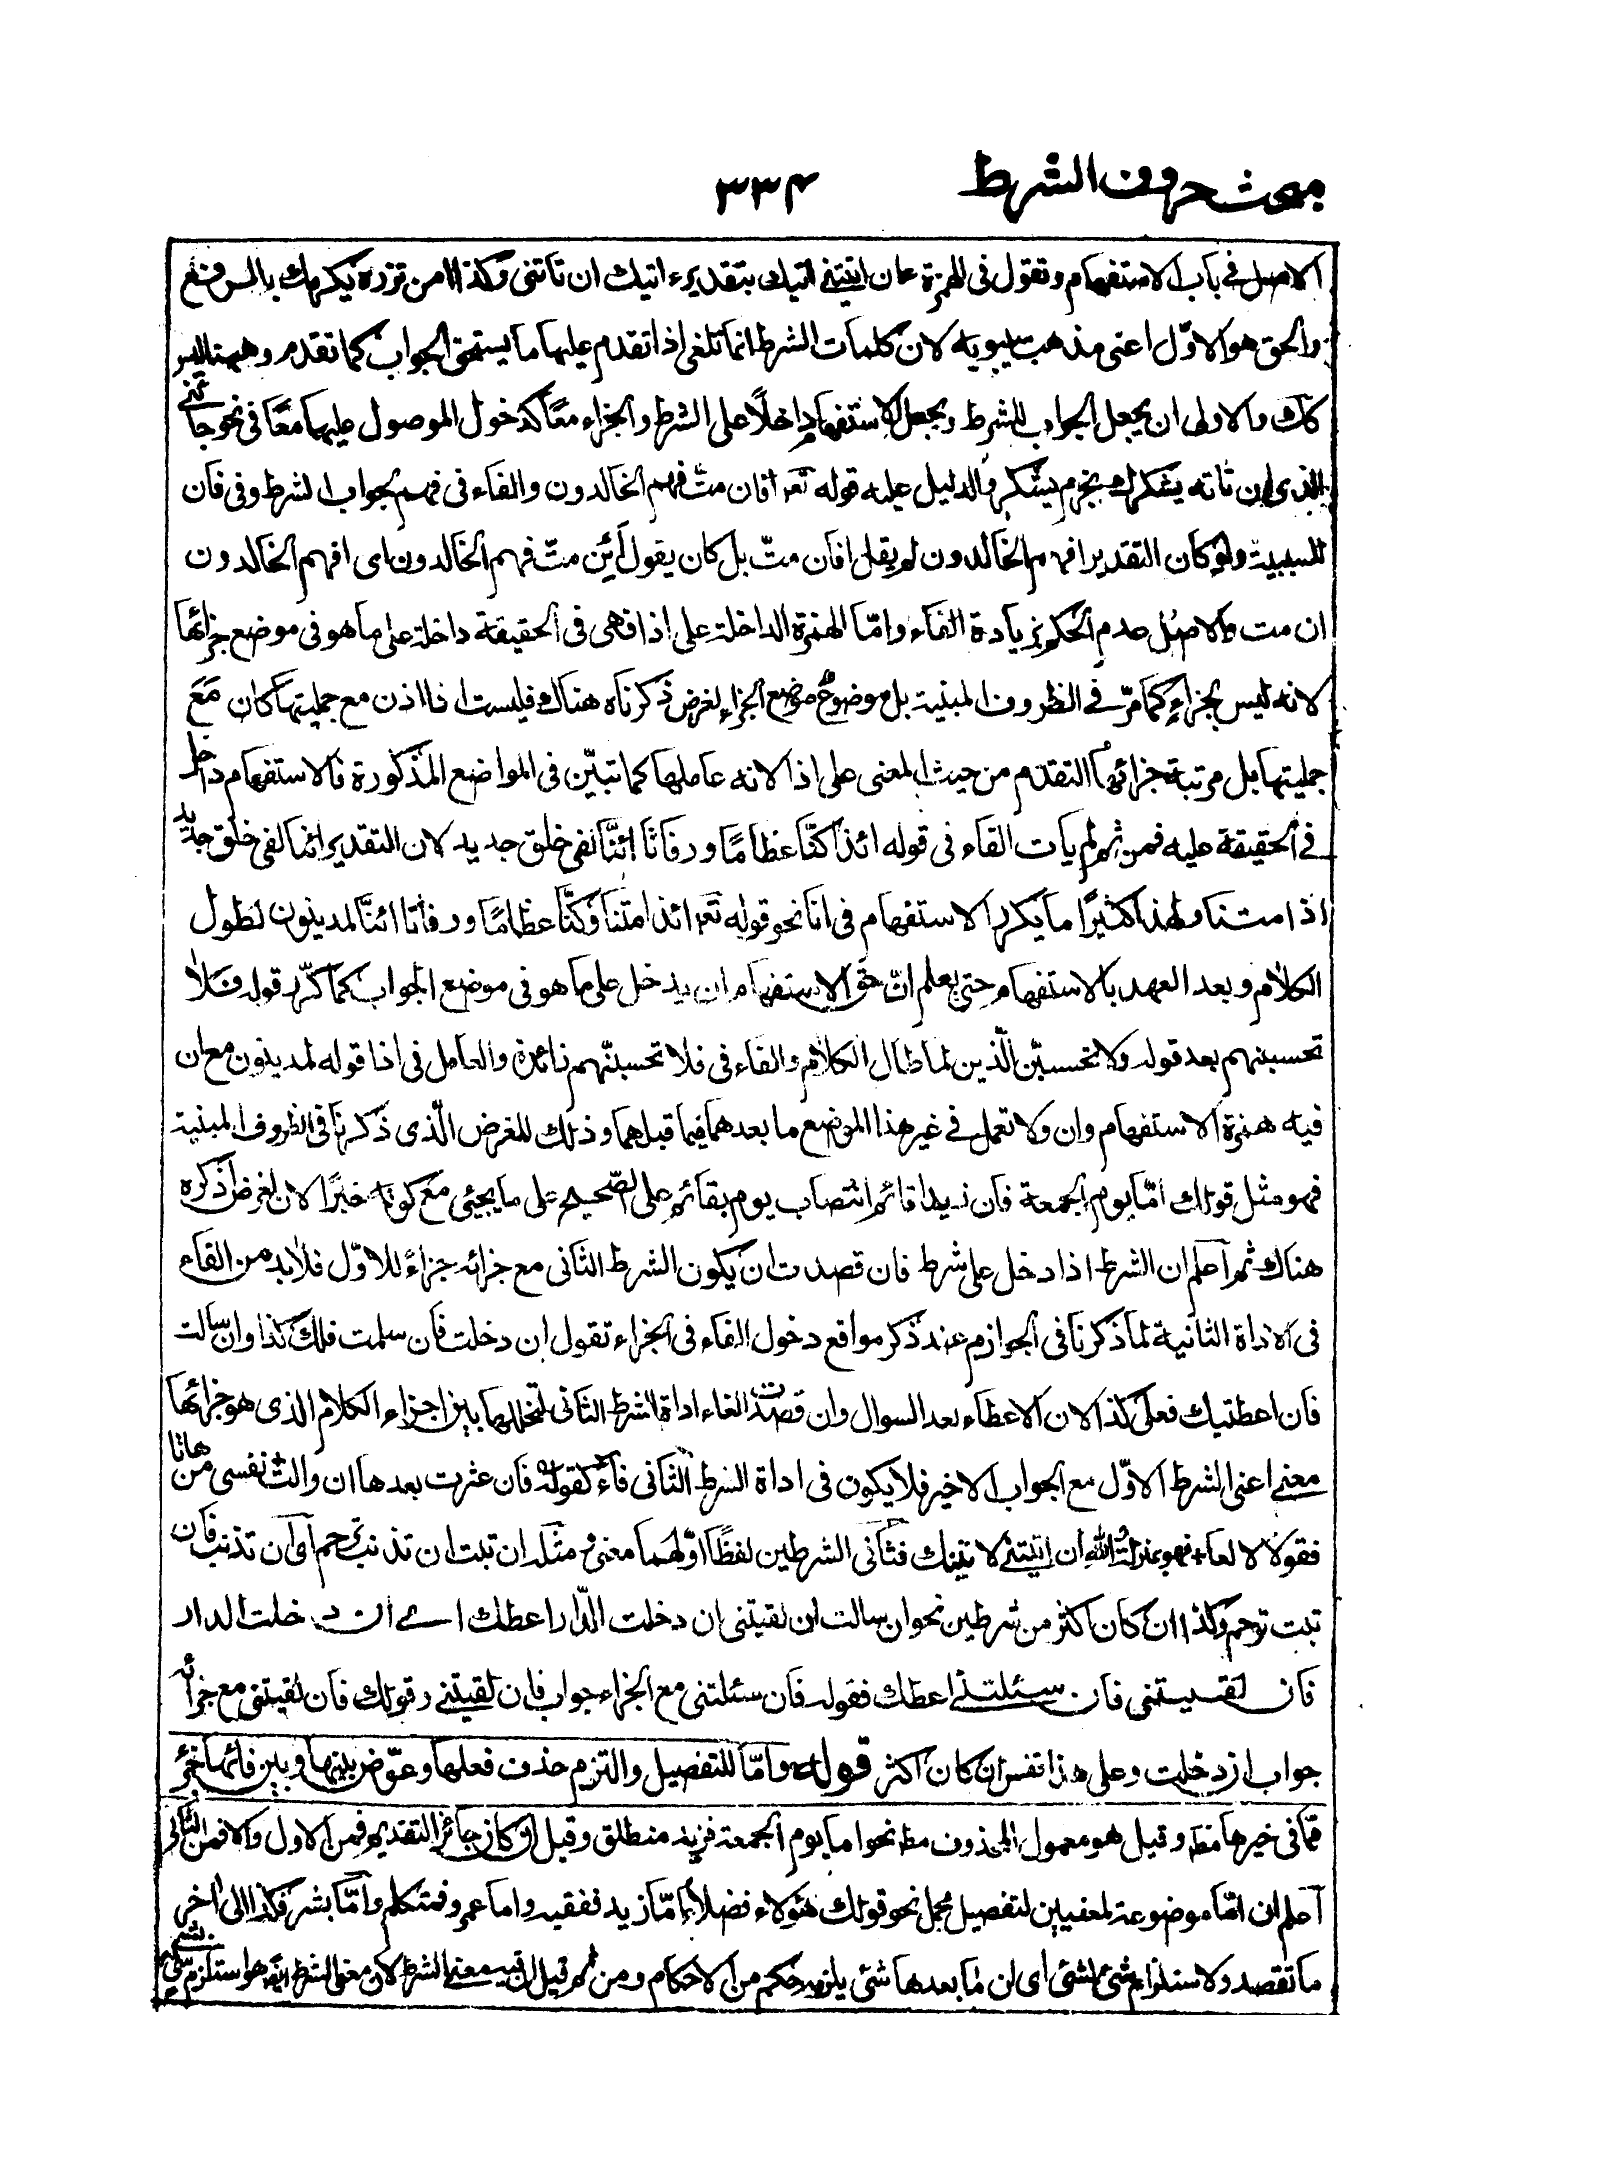 مبحث حروف الشرط
٣٣٤
الاصل في باب الاستفهام وتقول فى الهمزة ءان اتيتنى اتيك بتقديرء اتيك ان تاتنى وكذا امن تزره يكرمك بالرفع
والحق هو الاوّل اعنى مذهب سيبويه لان كلمات الشرط انما تلغى اذا تقدم عليها ما يستحق الجواب كما تقدم وههنا ليس
كك والاولى ان يجعل الجواب للشرط ويجعل الاستفهام داخلًا على الشرط والجزاء معًا كدخول الموصول عليهما معًا فى نحو جائنى
الذى ان تاته يشكرك بجزم يشكر والدليل عليه قوله تعم افان متّ فهم الخالدون والفاء فى فهم لجواب الشرط وفى فان
للسببية ولو كان التقدير افهم الخالدون لم يقل افان متّ بل كان يقول أئن متّ فهم الخالدون اى افهم الخالدون
ان مت والاصل عدم الحكم بزيادة الفاء وامّا الهمزة الداخلة على اذا فهى فى الحقيقة داخلة على ما هو فى موضع جزائها
لانه ليس بجزاءٍ كما مرّ فى الظروف المبنية بل موضوعٌ موضع الجزاء لغرض ذكرناه هناك فليست اذا اذن مع جمليتها كان مَعَ
جمليتها بل مرتبة جزائها التقدم من حيث المعنى على اذا لانه عاملها كما تبيّن فى المواضع المذكورة فالاستفهام داخل
فى الحقيقة عليه فمن ثم لم يات الفاء فى قوله ائذا كنّا عظامًا ورفاتًا ائنّا لفى خلق جديد لان التقدير ائنا لفى خلق جديد
اذا متنا ولهذا كثيرًا ما يكرر الاستفهام فى انا نحو قوله تعم ائذا متنا وكنّا عظامًا ورفاتا ائنّا لمدينون لطول
الكلام وبعد العهد بالاستفهام حتى يعلم انّ حق الاستفهام ان يدخل على ما هو فى موضع الجواب كما كرّر قوله فلا
تحسبنهم بعد قوله ولا تحسبنّ الّذين لما طال الكلام والفاء فى فلا تحسبنّهم زائدة والعامل فى اذا قوله لمدينون مع ان
فيه همزة الاستفهام وان ولا تعمل فى غير هذا الموضع ما بعدهما فيما قبلهما وذلك للغرض الّذى ذكرنا فى الظروف المبنية
فهو مثل قولك امّا يوم الجمعة فان زيدا قائم انتصاب يوم بقائم على الصّحيح على ما يجيئى مع كونه خبرًا لان لغرض اذكره
هناك ثم اعلم ان الشرط اذا دخل على شرط فان قصدت ان يكون الشرط الثانى مع جزائه جزاءً للاوّل فلابد من الفاء
فى الاداة الثانية لما ذكرنا فى الجوازم عند ذكر مواقع دخول الفاء فى الجزاء تقول ان دخلت فان سلمت فلك كذا وان سالت
فان اعطيتك فعلىّ كذا لان الاعطاء بعد السوال وان قصدت الغاء اداة الشرط الثانى لتخللها بين اجزاء الكلام الذى هو جزائها
معنى اعنى الشرط الاوّل مع الجواب الاخير فلا يكون فى اداة الشرط الثانى فاءٌ كقوله فان عثرت بعدها ان والت نفسى من هاتا
فقولا لا لعا فهو بمنزلة والله ان اتيتنى لاتينك فثانى الشرطين لفظًا اوّلهما معنى ومثله ان تبت ان تذنب ترحم اى ان تذنب فان
تبت ترحم وكذا ان كان اكثر من شرطين نحو ان سالت ان لقيتنى ان دخلت الدّار اعطك اى ان دخلت الدار
فان لقيتنى فان سئلتنى اعطك فقوله فان سئلتنى مع الجزاء جواب فان لقيتنى وقولك فان لقيتنى مع جزائه
جواب ان دخلت وعلى هذا تقس ان كان اكثر قوله وامّا للتفصيل والتزم حذف فعلها وعوّض بينها وبين فائها جزءٌ
ممّا فى خيرها مط وقيل هو معمول المحذوف مط نحو اما يوم الجمعة فزيد منطلق وقيل ان كان جائز التقديم فمن الاول والا فمن الثانى
اعلم ان امّا موضوعة لمعنيين لتفصيل مجمل نحو قولك هؤلاء فضلاء امّا زيد ففقيه واما عمرو فمتكلم وامّا بشر فكذا الى اخر
ما تقصد ولاستلزام شئ لشئ اى لن ما بعدها شئ يلزمه حكم من الاحكام ومن ثم قيل ان فيه معنى الشرط لان معنى الشرط ايضا هو استلزام شئ لشئ